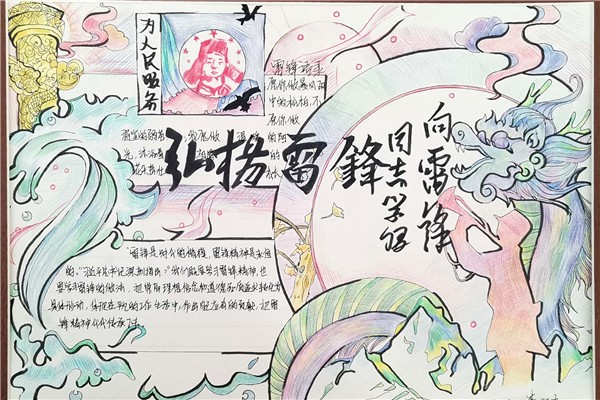 为人民服务
雷锋语录
愿你做暴风雨
中的松柏,不
愿你做
弘扬雷鋒
向雷锋
同志学习
"雷锋是时代的楷模,雷锋精神是永恒
的。"习近平总书记深刻指出:"我们既要学习雷锋精神,也
要学习雷锋的做法,把崇高理想信念和道德品质追求转化为
具体行动,体现在平凡的工作生活中,作出自己应有的贡献,把雷
锋精神代代传承下去